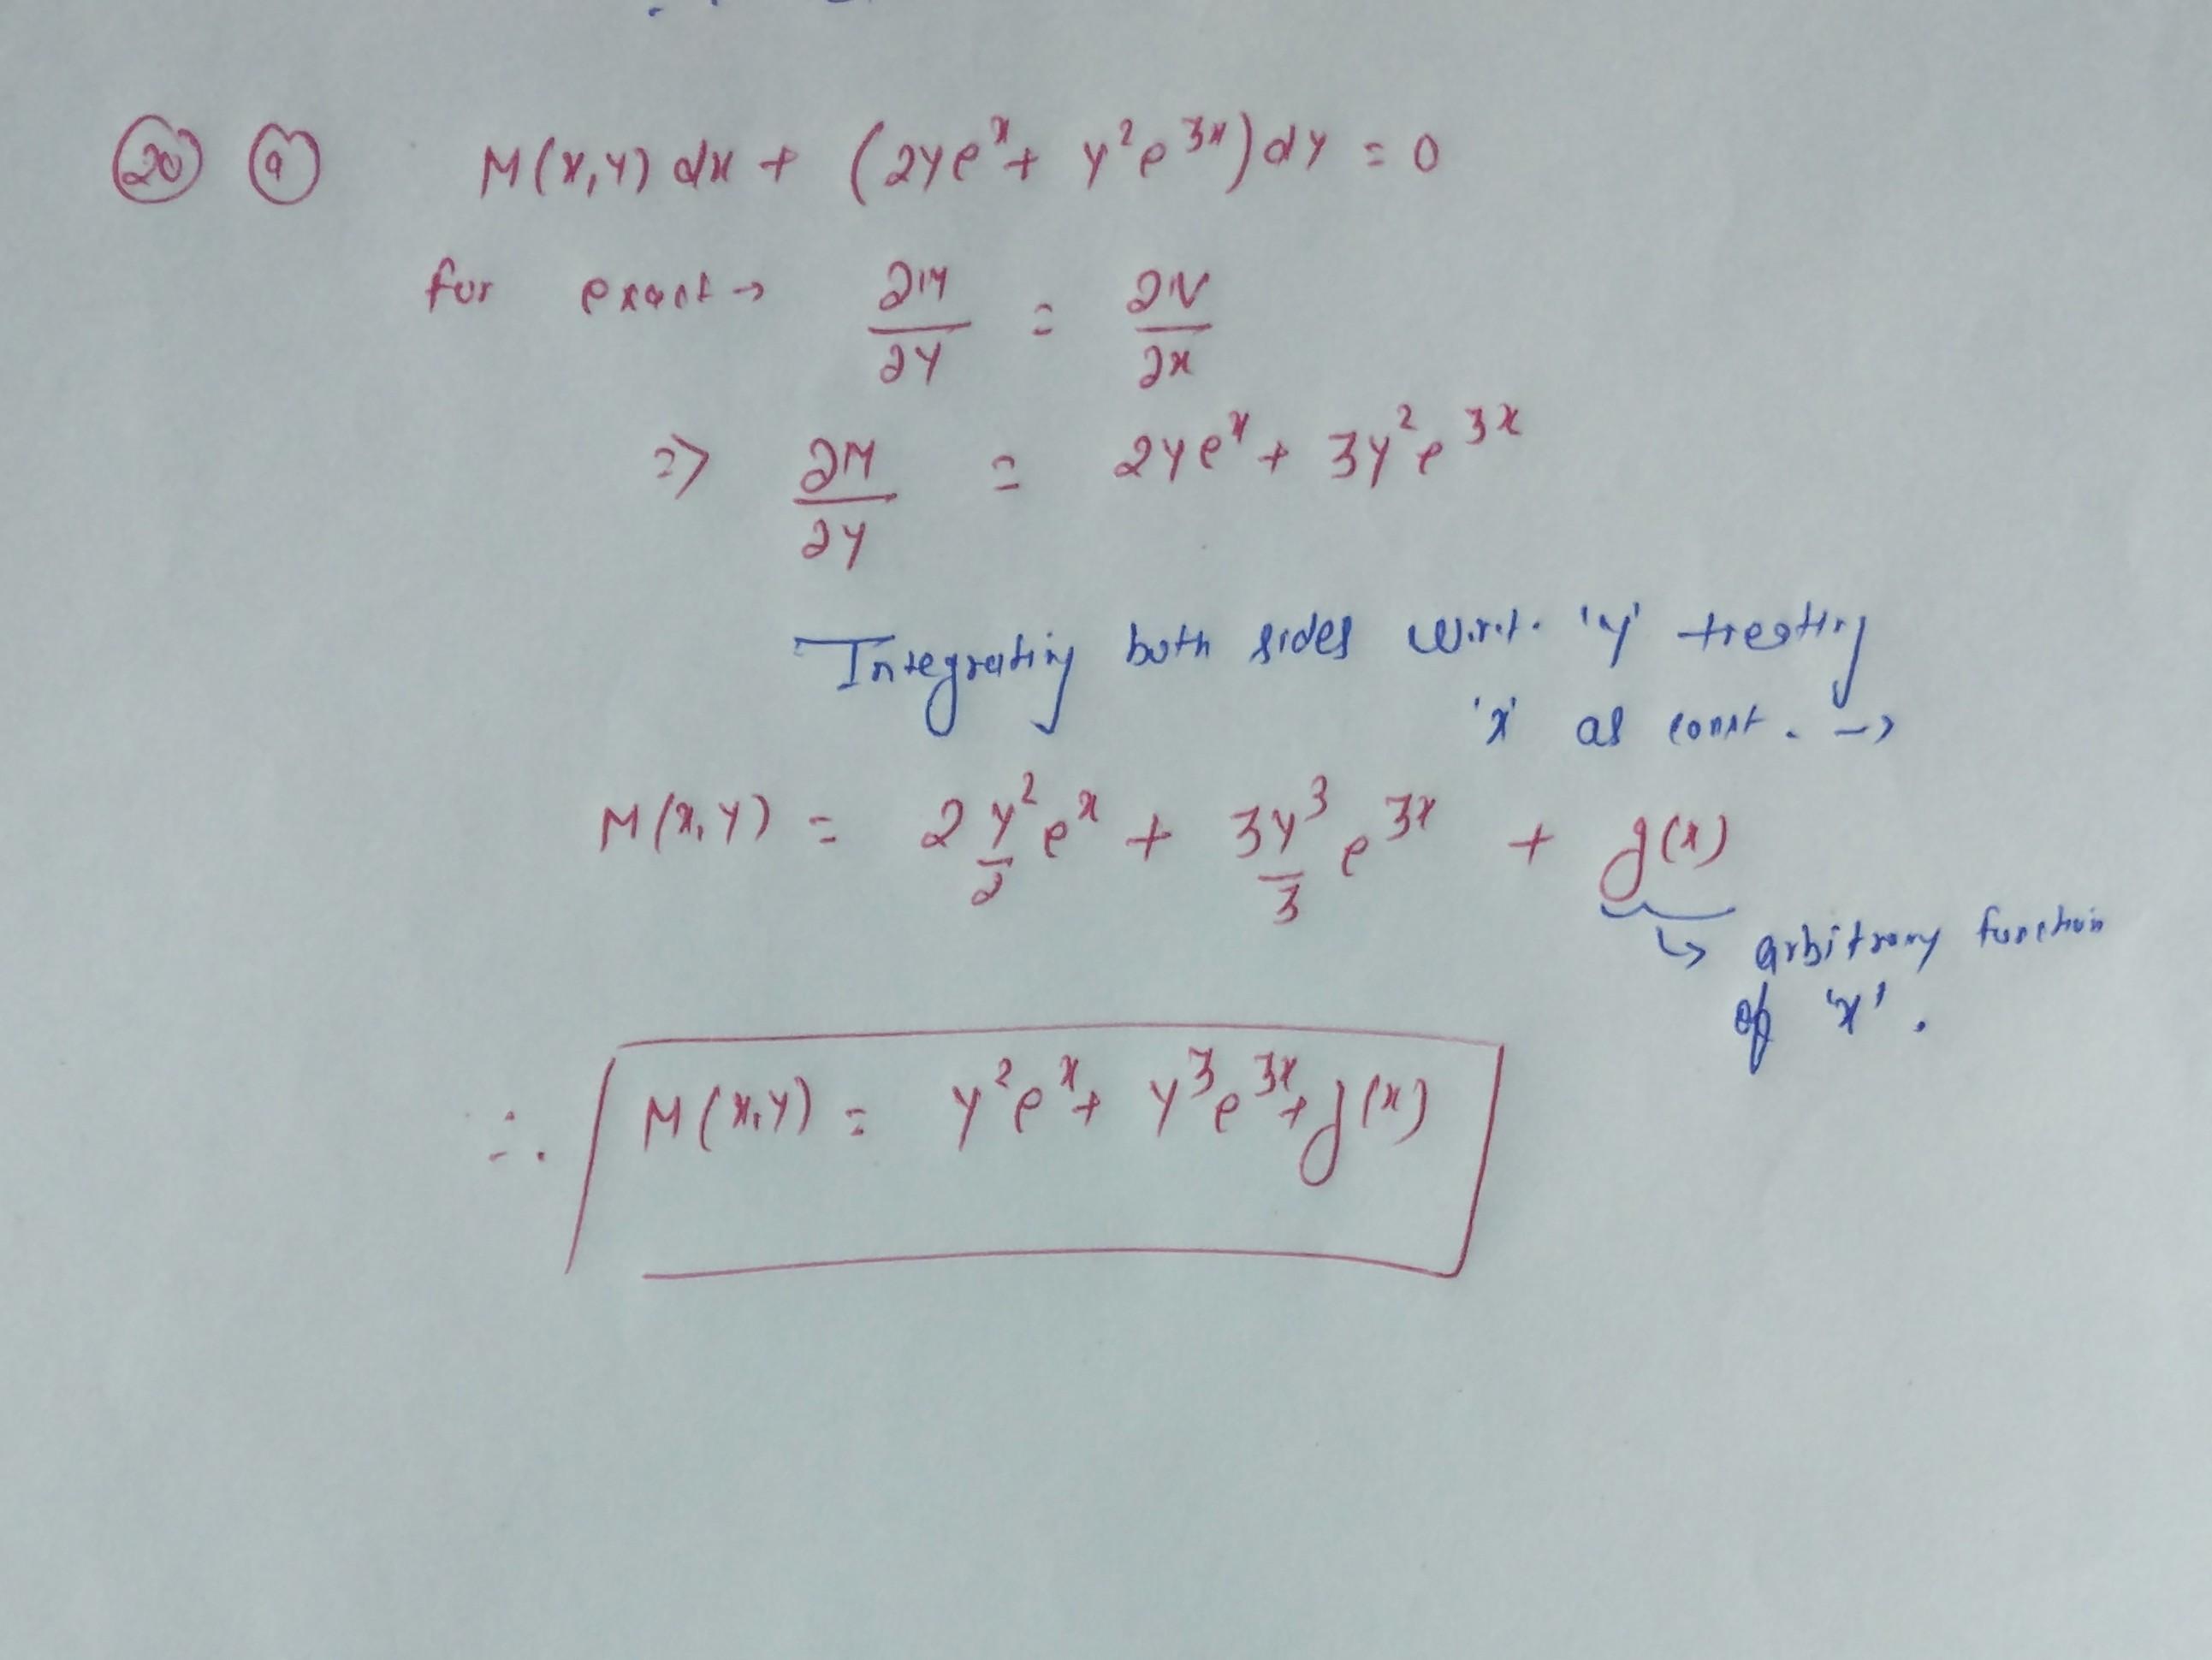 20 9 M(x,y) dx + (2ye^x + y^2e^3x) dy = 0
for exact → ∂M/∂y = ∂N/∂x
=> ∂M/∂y = 2ye^x + 3y^2e^3x
Integrating both sides w.r.t. 'y' treating
'x' as const. →
M(x,y) = 2 y^2/2 e^x + 3y^3/3 e^3x + g(x)
↳ arbitrary function
of 'x'.
∴ M(x,y) = y^2e^x + y^3e^3x + g(x)